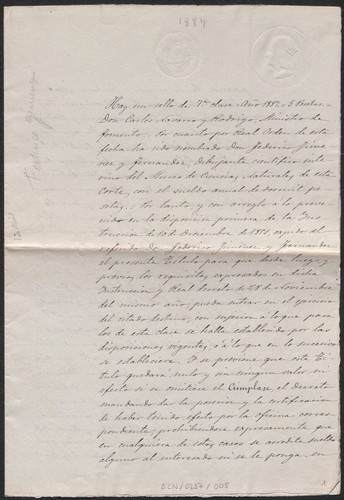 1887
Hay un sello de 7ª clase. Año 1887. 5 Pesetas.
Don Carlos Navarro y Rodrigo, Ministro de
Fomento. Por cuanto por Real Orden de esta
fecha ha sido nombrado Don Federico Jime
nez y Fernandez, Dibujante científico inte
rino del Museo de Ciencias Naturales de esta
Corte, con el sueldo anual de dos mil pe
setas. Por tanto, y con arreglo a lo preve
nido en la disposición primera de la Ins
trucción de 10 de Diciembre de 1851, expido al
referido Don Federico Jimenez y Fernandez
el presente Título para que desde luego, y
previos los requisitos expresados en dicha
Instrucción y Real decreto de 28 de Noviembre
del mismo año, pueda entrar en el ejercicio
del citado destino, con sujeción á lo que para
los de esta clase se halla establecido por las
disposiciones vigentes, ó á lo que en lo sucesivo
se estableciera. Y se previene que este tí
tulo quedará nulo y sin ningun valor ni
efecto si se omitiere el Cumplase, el decreto
mandando dar la posesión y la certificación
de haber tenido efecto por la oficina corres
pondiente; prohibiéndose expresamente que
en cualquiera de estos casos se acredite sueldo
alguno al interesado ni se le ponga en
ACN/0257/005